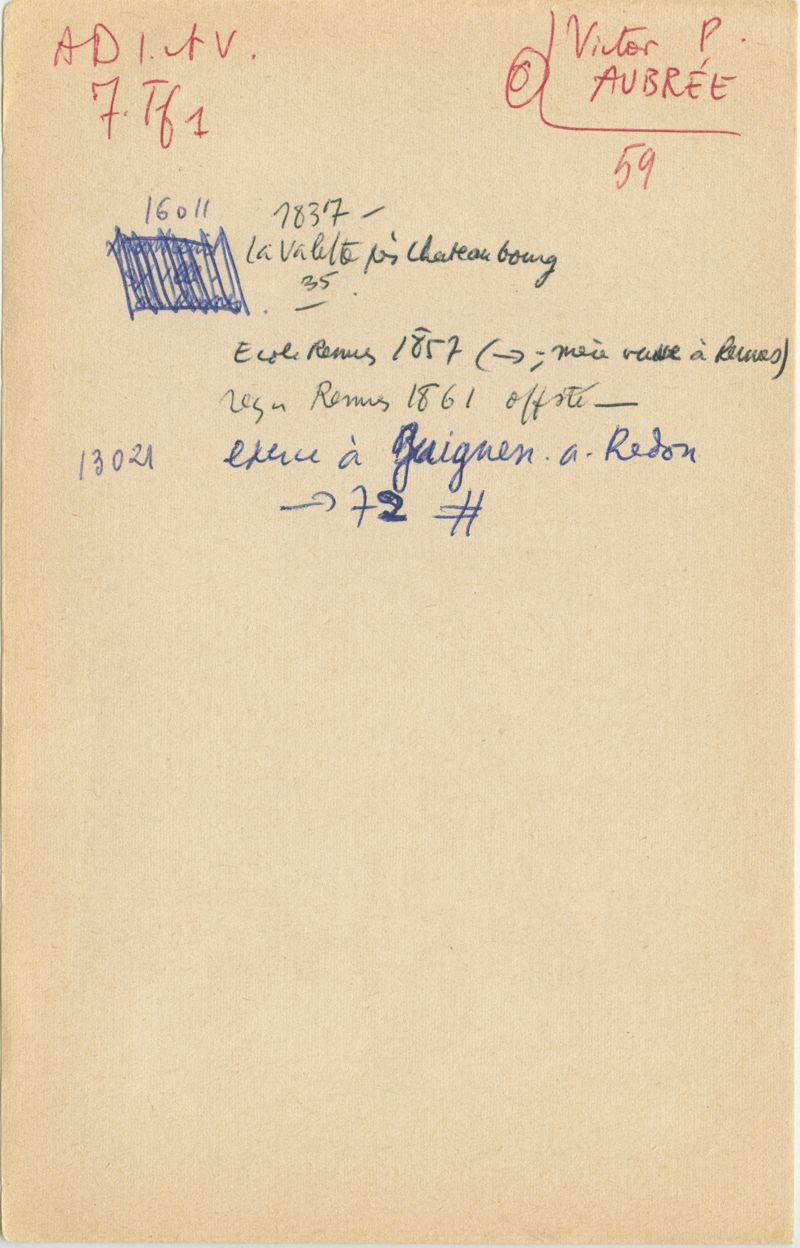 AD I. et V.
7. Tf 1
Victor P.
AUBRÉE
59
16011
1837 –
La Valette près Chateaubourg
35
Ecole Rennes 1857 (→ ; mère veuve à Rennes)
reçu Rennes 1861 off sté —
13021
exerce à Guignen. a. Redon
→ 72 #